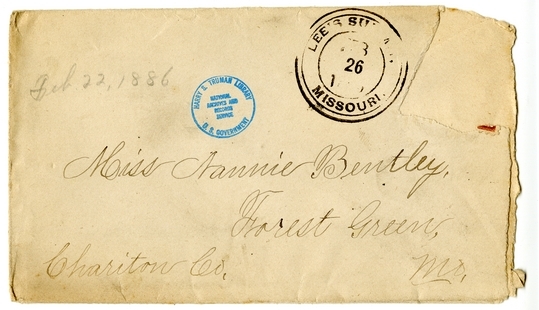 Feb 22, 1886
HARRY S. TRUMAN LIBRARY
NATIONAL
ARCHIVES AND
RECORDS
SERVICE
U. S. GOVERNMENT
LEE'S
26
MISSOURI.
Miss Nannie Bentley,
Forest Green,
Chariton Co. Mo.